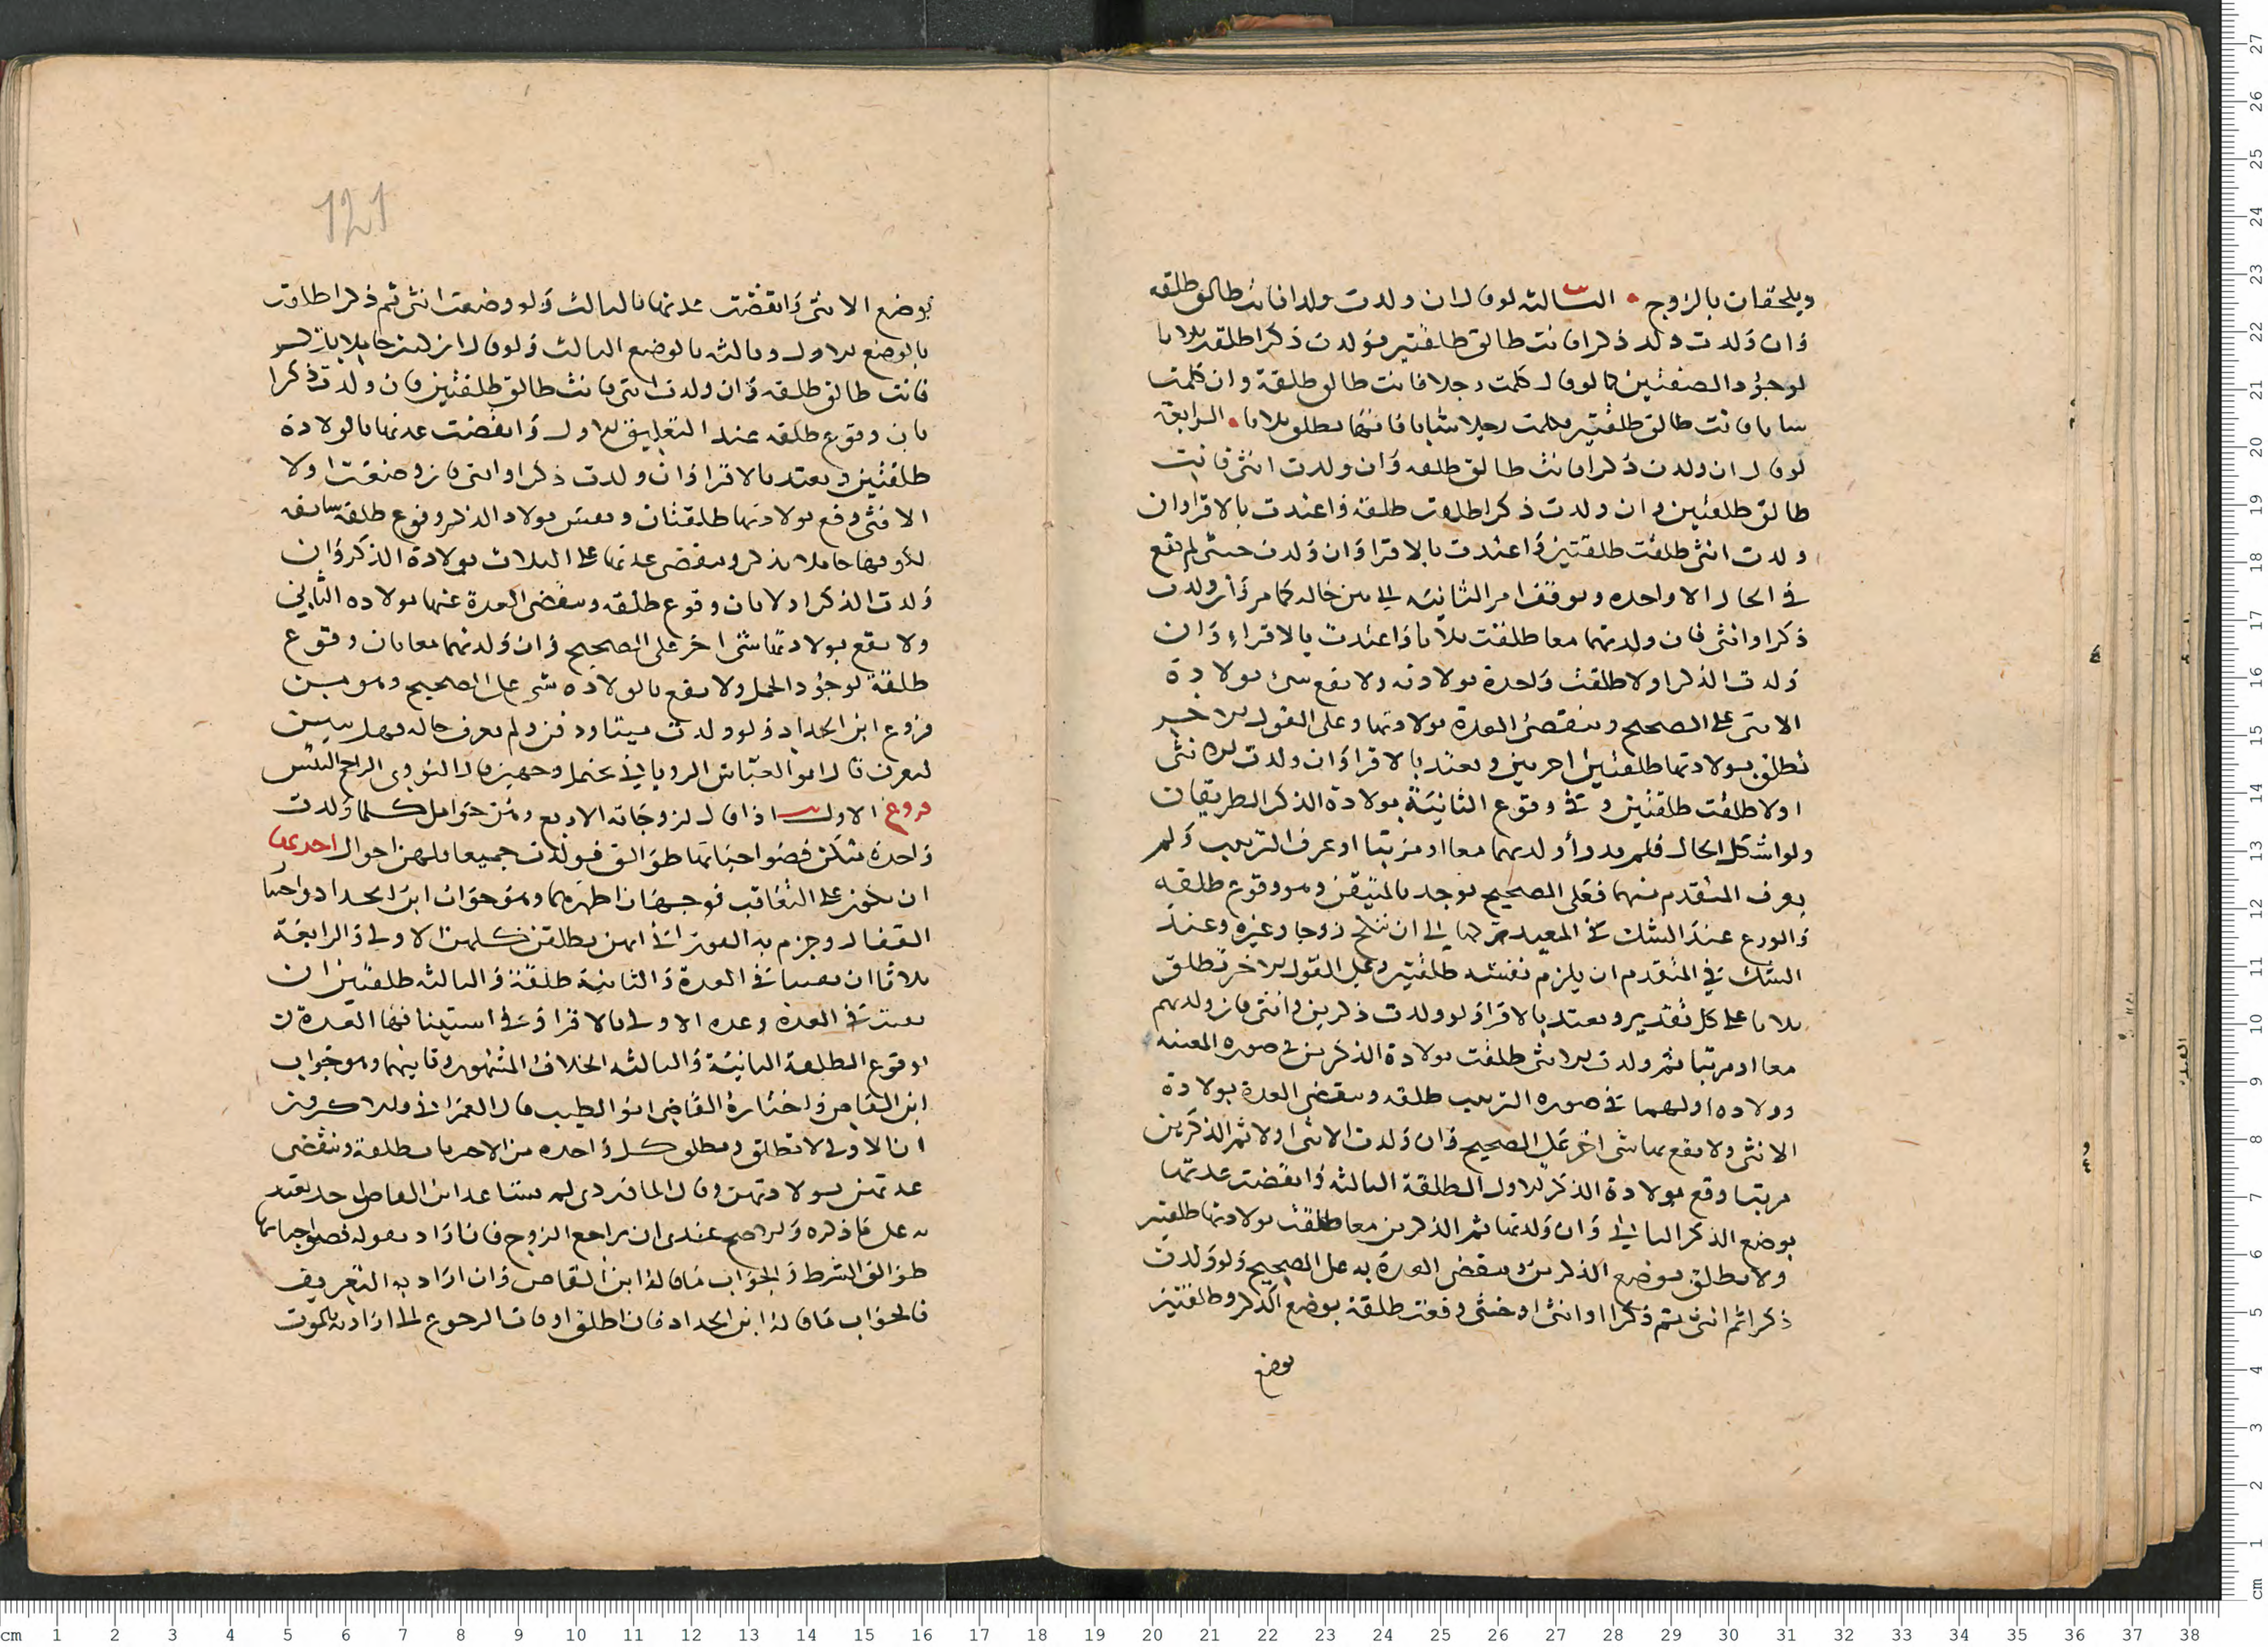 ويلحقان بالزوج الثالثة لو قال ان ولدت ولدا فانت طالق طلقه
وان ولدت ولد ذكرا فانت طالق طلقتين فولدت ذكرا طلقت ثلاثا
لوجود الصفتين كما لو قال كلمت رجلا فانت طالق طلقة وان كلمت
شابا فانت طالق طلقتين فكلمت رجلا شابا فانها تطلق ثلاثا الرابعة
لو قال ان ولدت ذكرا فانت طالق طلقه وان ولدت انثى فانت
طالق طلقتين وان ولدت ذكرا طلقت طلقة واعتدت بالاقرا وان
ولدت انثى طلقت طلقتين واعتدت بالاقرا وان ولدت خنثى لم تقع
في الحال الا واحده وتوقف امر الثانية الى تبين حاله كما مر وان ولدت
ذكرا وانثى فان ولدتهما معا طلقت ثلاثا واعتدت بالاقراء وان
ولدت الذكر اولا طلقت واحدة بولادته ولا تقع شى بولادة
الانثى على الصحيح وتنقضى العدة بولادتها وعلى القول الاخير
تطلق بولادتها طلقتين اخرتين وتعتد بالاقرا وان ولدت الانثى
اولا طلقت طلقتين وفي وقوع الثانية بولادة الذكر الطريقان
ولو اشكل الحال فلم يدر أولدتهما معا او مرتبا او عرف الترتيب ولم
يعرف المتقدم منهما فعلى الصحيح يوخذ بالمتيقن وهو وقوع طلقه
والورع عند الشك في المعية تركها الى ان تنكح زوجا وغيره وعند
الشك في المتقدم ان يلزم نفسه طلقتين وعلى القول الاخر تطلق
ثلاثا على كل تقدير وتعتد بالاقرا ولو ولدت ذكرين وانثى فان ولدتهم
معا او مرتبا ثم ولدت الانثى طلقت بولادة الذكرين في صوره المعيه
وولاده اولهما في صوره الترتيب طلقه وتنقضى العدة بولادة
الانثى ولا تقع بها شى اخر على الصحيح وان ولدت الانثى اولا ثم الذكرين
مرتبا وقع بولادة الذكر الاول الطلقة الثالثه وانقضت عدتها
بوضع الذكر الثانى وان ولدتها ثم الذكرين معا طلقت بولادتها طلقتين
ولا تطلق بوضع الذكرين وتنقضى العدة به على الصحيح ولو ولدت
ذكرا ثم انثى ثم ذكرا او انثى او خنثى وقعت طلقة بوضع الذكر وطلقتين
بوضع
121
بوضع الانثى وانقضت عدتها بالثالث ولو وضعت انثى ثم ذكرا طلقت
بالوضع الاول وثالثه بالوضع الثالث ولو قال ان كنت حاملا بذكر
فانت طالق طلقه وان ولدت انثى فانت طالق طلقتين فان ولدت ذكرا
بان وقوع طلقه عند التعليق الاول وانقضت عدتها بالولادة
طلقتين وتعتد بالاقرا وان ولدت ذكرا وانثى فان وضعت اولا
الانثى وقع بولادتها طلقتان وتبين بولاد الذكر وقوع طلقة سابقه
لكونها حاملا بذكر وتنقضى عدتها على الثلاث بولادة الذكر وان
ولدت الذكر اولا بان وقوع طلقه وتنقضى العدة عنها بولاده الثانى
ولا تقع بولادتها شى اخر على الصحيح وان ولدتهما معا بان وقوع
طلقة لوجود الحمل ولا تقع بالولاده شى على الصحيح وهو مبين
فروع ابن الحداد ولو ولدت ميتا ودفن ولم يعرف حاله فهل ينبش
ليعرف قال ابو العباس الرويانى يحتمل وجهين قال النووى الراجح النبش
فروع الاول اذا قال لزوجاته الاربع وهن حوامل كلما ولدت
واحدة منكن فصواحباتها طوالق فولدن جميعا فلهن احوال احدىها
ان يكون على التعاقب فوجهان اظهرهما وهو جواب ابن الحداد واختيار
القفال وجزم به الفورانى انهن يطلقن كلهن الاولى والرابعة
ثلاثا ان بقيتا في العدة والثانية طلقة والثالثه طلقتين ان
بقيت في العدة وعدة الاولى بالاقرا وفي استينافها العدة ن
لوقوع الطلقة الثانية والثالثه الخلاف المشهور وثانيهما وهو جواب
ابن القاص واختاره القاضى ابو الطيب قال العمرانى والاكثرون
ان الاولى لا تطلق وتطلق كل واحده من الاخريات طلقة وتنقضى
عدتهن بولادتهن وقال الماوردى لم يساعد ابن القاص احد يعتد
به على ما ذكره والاصح عندى ان يراجع الزوج فان اراد بقوله فصواحباتها
طوالق الشرط فالجواب ما قاله ابن القاص وان اراد به التعريف
فالجواب ما قاله ابن الحداد فان اطلق او فات الرجوع الى ارادته بالموت